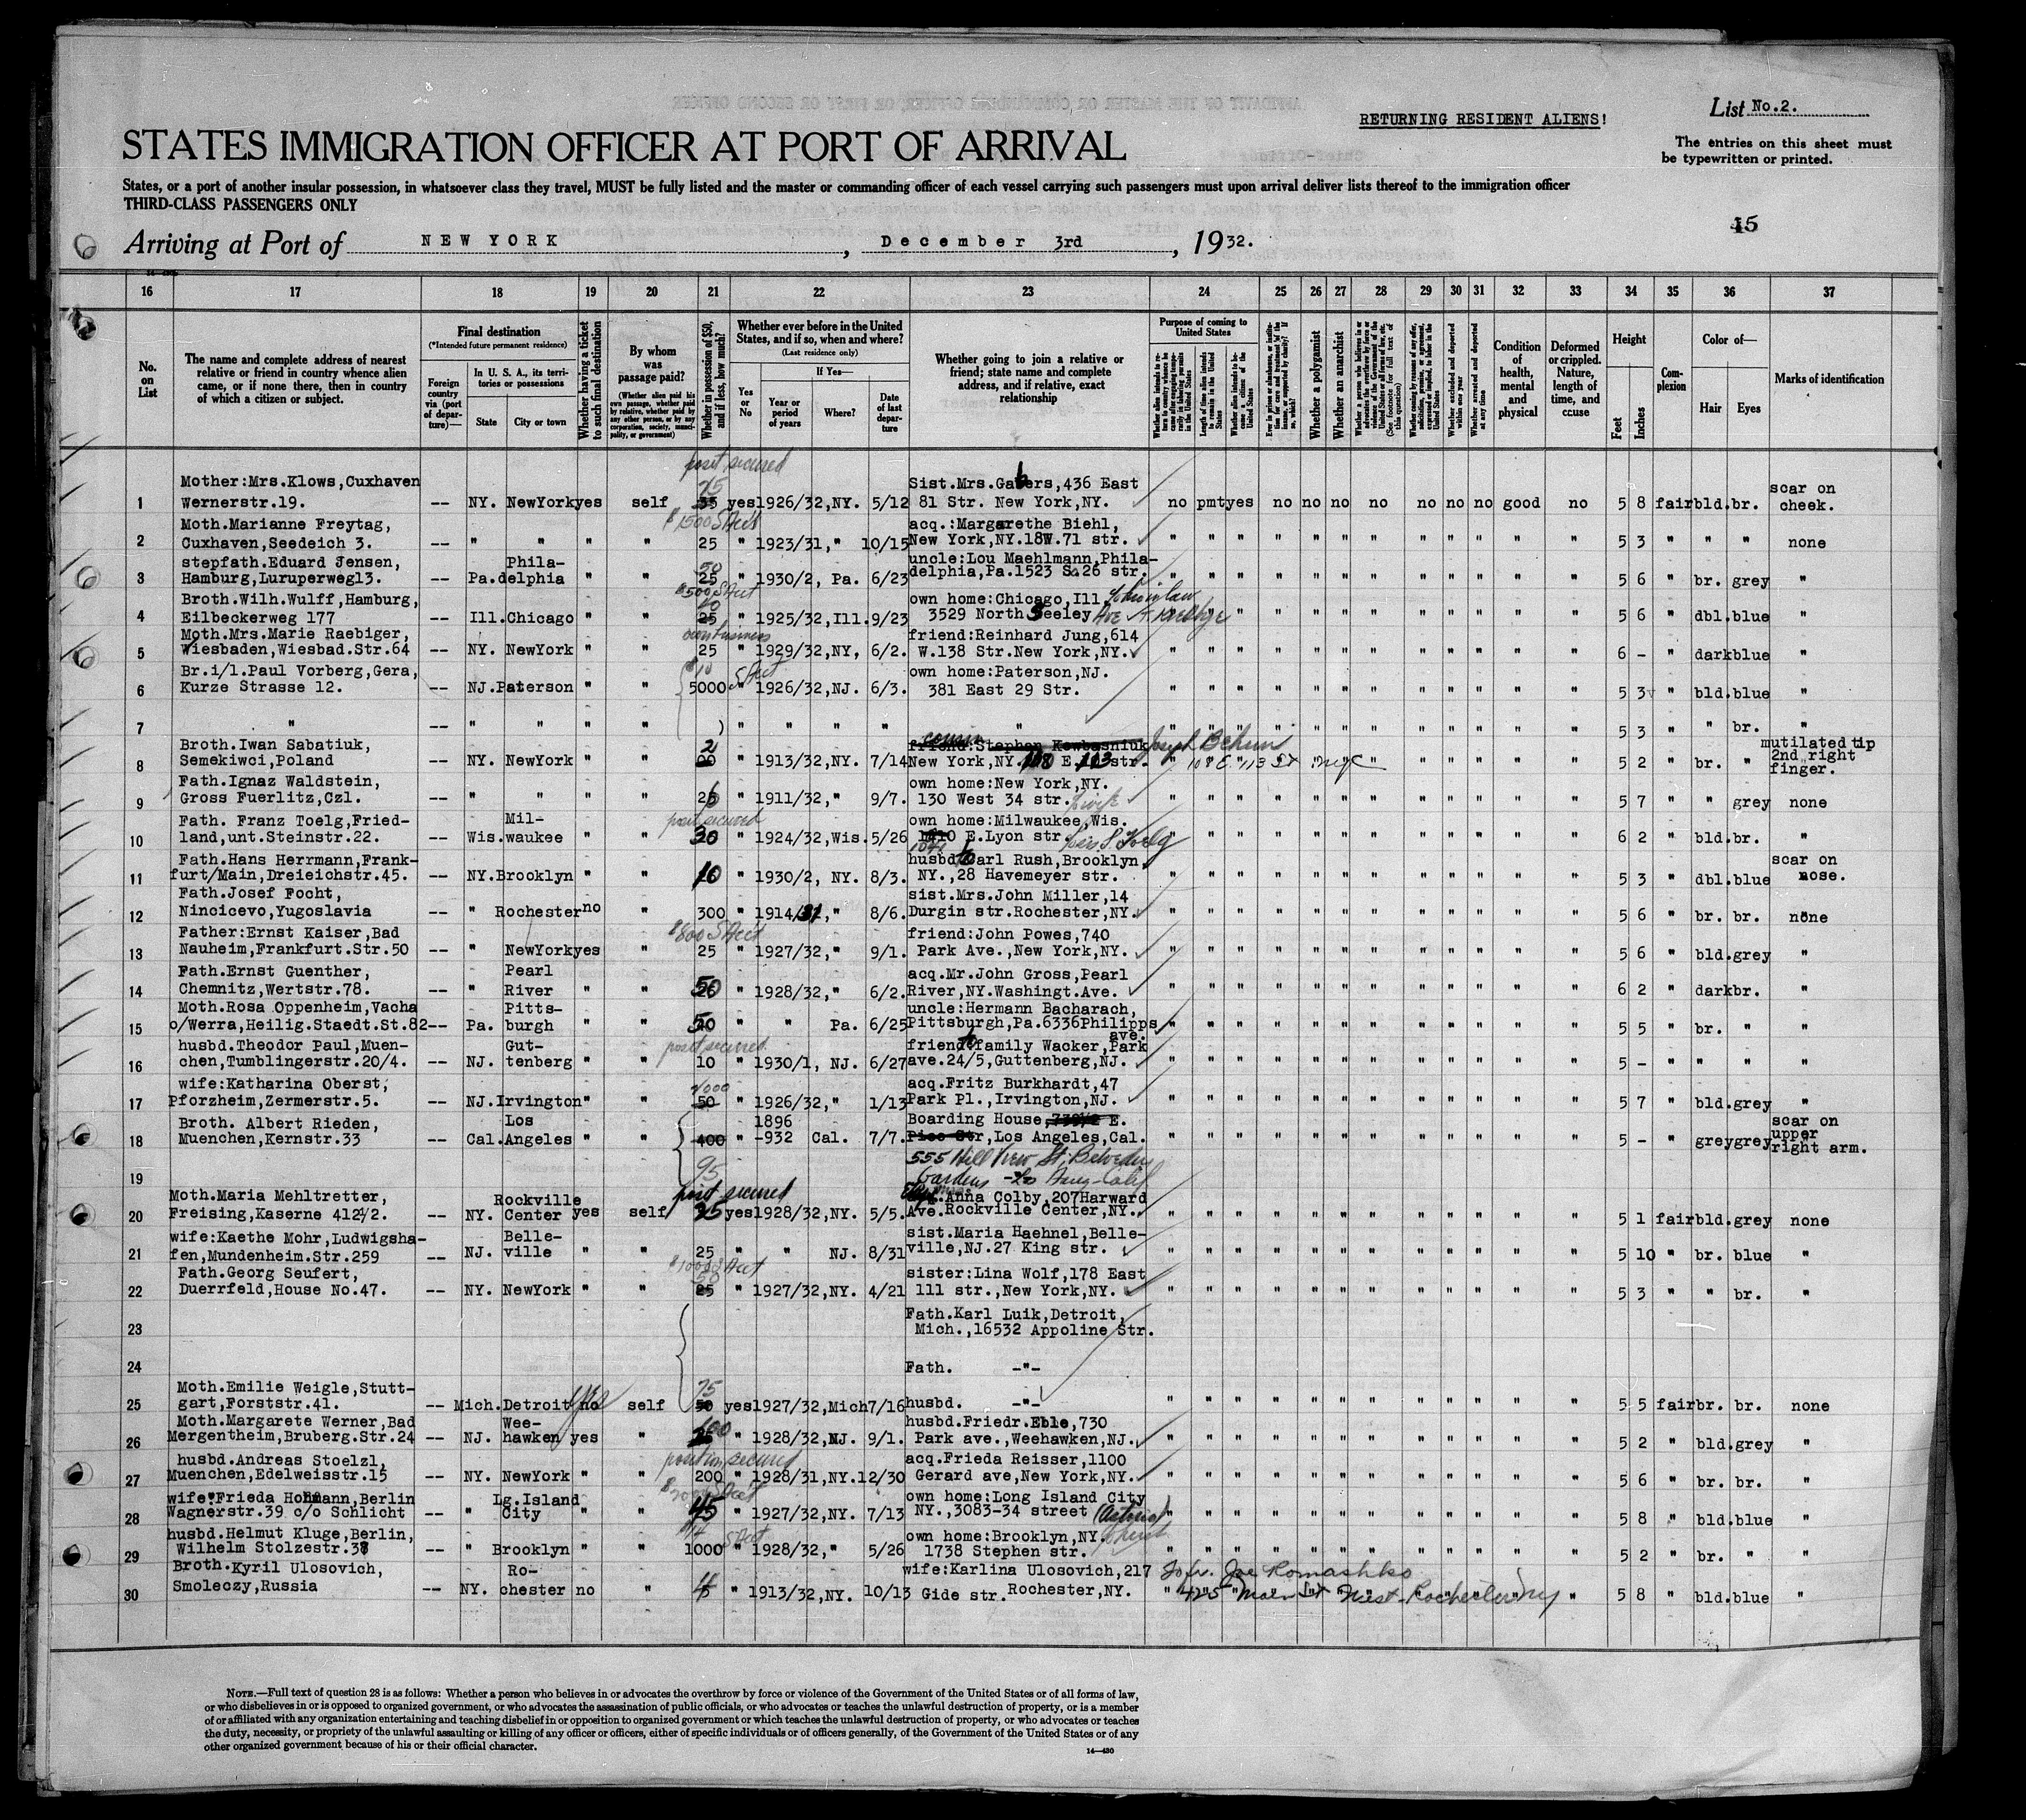 RETURNING RESIDENT ALIENS!
List No.2.
STATES IMMIGRATION OFFICER AT PORT OF ARRIVAL
The entries on this sheet must
be typewritten or printed.
States, or a port of another insular possession, in whatsoever class they travel, MUST be fully listed and the master or commanding officer of each vessel carrying such passengers must upon arrival deliver lists thereof to the immigration officer
THIRD-CLASS PASSENGERS ONLY
Arriving at Port of NEW YORK, December 3rd, 1932.
16 17 18 19 20 21 22 23 24 25 26 27 28 29 30 31 32 33 34 35 36 37
No. on List
The name and complete address of nearest relative or friend in country whence alien came, or if none there, then in country of which a citizen or subject.
Final destination
(*Intended future permanent residence)
Foreign country via (port of departure)—
In U. S. A., its territories or possessions
State City or town
Whether having a ticket to such final destination
By whom was passage paid?
(Whether alien paid his own passage, whether paid by relative, whether paid by any other person, or by any corporation, society, municipality, or government)
Whether in possession of $50, and if less, how much?
Whether ever before in the United States, and if so, when and where?
(Last residence only)
Yes or No
If Yes—
Year or period of years Where? Date of last departure
Whether going to join a relative or friend; state name and complete address, and if relative, exact relationship
Purpose of coming to United States
Length of time alien intends to remain in the United States
Whether alien intends to become a citizen of the United States
Whether a polygamist
Whether an anarchist
Whether excluded and deported within one year
Whether arrested and deported at any time
Condition of health, mental and physical
Deformed or crippled. Nature, length of time, and cause
Height
Feet Inches
Complexion
Color of—
Hair Eyes
Marks of identification
1 Mother:Mrs.Klows,Cuxhaven Wernerstr.19. -- NY. NewYork yes self 75 yes 1926/32,NY. 5/12 Sist.Mrs.Gabers,436 East 81 Str. New York,NY. no pmt yes no no no no no no no good no 5 8 fair bld. br. scar on cheek.
posit secured
2 Moth.Marianne Freytag, Cuxhaven,Seedeich 3. -- " " " " 25 " 1923/31," 10/15 acq.:Margarethe Biehl, New York,NY.18W.71 str. 5 3 " " " none
$1500 S Acct
3 stepfath.Eduard Jensen, Hamburg,Luruperweg13. -- Pa. Philadelphia " " 50 25 " 1930/2, Pa. 6/23 uncle:Lou Maehlmann,Philadelphia,Pa.1523 S.26 str. 5 6 " br. grey "
4 Broth.Wilh.Wulff,Hamburg, Eilbeckerweg 177 -- Ill. Chicago " " 25 " 1925/32,Ill. 9/23 own home:Chicago,Ill. 3529 North Seeley Ave 5 6 " dbl. blue "
$500 S Acct
5 Moth.Mrs.Marie Raebiger, Wiesbaden,Wiesbad.Str.64 -- NY. NewYork " " 25 " 1929/32,NY, 6/2. friend:Reinhard Jung,614 W.138 Str.New York,NY. 6 - " dark blue "
own business
6 Br.i/l.Paul Vorberg,Gera, Kurze Strasse 12. -- NJ. Paterson " " 5000 " 1926/32,NJ. 6/3. own home:Paterson,NJ. 381 East 29 Str. 5 3 " bld. blue "
7 " -- " " " " " " " " " 5 3 " " br. "
8 Broth.Iwan Sabatiuk, Semekiwci,Poland -- NY. NewYork " " 20 " 1913/32,NY. 7/14 cousin friend:Stephan Kowbasniuk New York,NY. 108 E.113 str. Joseph Behun 108 E 113 St NYC 5 2 " br. " mutilated tip 2nd right finger.
9 Fath.Ignaz Waldstein, Gross Fuerlitz,Czl. -- " " " " 25 " 1911/32," 9/7. own home:New York,NY. 130 West 34 str. 5 7 " " grey none
10 Fath. Franz Toelg,Friedland,unt.Steinstr.22. -- Wis. Milwaukee " " 30 " 1924/32,Wis. 5/26 own home:Milwaukee,Wis. E.Lyon str. 6 2 " bld. br. "
posit secured
11 Fath.Hans Herrmann,Frankfurt/Main,Dreieichstr.45. -- NY. Brooklyn " " 10 " 1930/2, NY. 8/3. husbd Carl Rush,Brooklyn NY.,28 Havemeyer str. 5 3 " dbl. blue scar on nose.
12 Fath.Josef Focht, Nincicevo,Yugoslavia -- " Rochester no " 300 " 1914/31," 8/6. sist.Mrs.John Miller,14 Durgin str.Rochester,NY. 5 6 " br. br. none
13 Father:Ernst Kaiser,Bad Nauheim,Frankfurt.Str.50 -- " NewYork yes " 25 " 1927/32," 9/1. friend:John Powes,740 Park Ave.,New York,NY. 5 6 " bld. grey "
$800 S Acct
14 Fath.Ernst Guenther, Chemnitz,Wertstr.78. -- " Pearl River " " 50 " 1928/32," 6/2. acq.Mr.John Gross,Pearl River,NY.Washingt.Ave. 6 2 " dark br. "
15 Moth.Rosa Oppenheim,Vacha o/Werra,Heilig.Staedt.St.82 -- Pa. Pittsburgh " " 50 " " Pa. 6/25 uncle:Hermann Bacharach, Pittsburgh,Pa.6336Philipps ave. 5 5 " br. " "
16 husbd.Theodor Paul,Muenchen,Tumblingerstr.20/4. -- NJ. Guttenberg " " 10 " 1930/1, NJ. 6/27 friend:family Wacker,Park ave.24/5,Guttenberg,NJ. 5 - " " " "
posit secured
17 wife:Katharina Oberst, Pforzheim,Zermerstr.5. -- NJ. Irvington " " 50 " 1926/32," 1/13 acq.Fritz Burkhardt,47 Park Pl.,Irvington,NJ. 5 7 " bld. grey "
18 Broth. Albert Rieden, Muenchen,Kernstr.33 -- Cal. Los Angeles " " 400 " 1896-932 Cal. 7/7. Boarding House, E. Pico Str,Los Angeles,Cal. 5 - " grey grey scar on upper right arm.
19 95 555 Hill View St, Belvedere Gardens - Los Ang - Calif
20 Moth.Maria Mehltretter, Freising,Kaserne 412½2. -- NY. Rockville Center yes self 25 yes 1928/32,NY. 5/5. Anna Colby,207Harward Ave.Rockville Center,NY. 5 1 fair bld. grey none
posit secured
21 wife:Kaethe Mohr,Ludwigshafen,Mundenheim.Str.259 -- NJ. Belleville " " 25 " " NJ. 8/31 sist.Maria Haehnel,Belleville,NJ.27 King str. 5 10 " br. blue "
22 Fath.Georg Seufert, Duerrfeld,House No.47. -- NY. NewYork " " 25 " 1927/32,NY. 4/21 sister:Lina Wolf,178 East 111 str.,New York,NY. 5 3 " " br. "
$1000 S Acct
23 Fath.Karl Luik,Detroit, Mich.,16532 Appoline Str.
24 Fath. -"-
25 Moth.Emilie Weigle,Stuttgart,Forststr.41. -- Mich. Detroit no yes self 75 50 yes 1927/32,Mich 7/16 husbd. -"- 5 5 fair br. br. none
26 Moth.Margarete Werner,Bad Mergentheim,Bruberg.Str.24 -- NJ. Weehawken yes " " 1928/32,NJ. 9/1. husbd.Friedr.Eble,730 Park ave.,Weehawken,NJ. 5 2 " bld. grey "
27 husbd.Andreas Stoelzl, Muenchen,Edelweisstr.15 -- NY. NewYork " " 200 " 1928/31,NY. 12/30 acq.Frieda Reisser,1100 Gerard ave,New York,NY. 5 6 " br. br. "
position secured
28 wife:Frieda Hohmann,Berlin Wagnerstr.39 c/o Schlicht -- " Lg.Island City " " 45 " 1927/32,NY. 7/13 own home:Long Island City NY.,3083-34 street (Astoria) 5 8 " bld. blue "
29 husbd.Helmut Kluge,Berlin, Wilhelm Stolzestr.38 -- " Brooklyn " " 1000 " 1928/32," 5/26 own home:Brooklyn,NY. 1738 Stephen str. 5 2 " br. " "
30 Broth.Kyril Ulosovich, Smoleczy,Russia -- NY. Rochester no " " 1913/32,NY. 10/13 wife:Karlina Ulosovich,217 Gide str. Rochester,NY. To fr. Joe Romashko 425 Main St West Rochester NY 5 8 " bld. blue "
NOTE.—Full text of question 28 is as follows: Whether a person who believes in or advocates the overthrow by force or violence of the Government of the United States or of all forms of law,
or who disbelieves in or is opposed to organized government, or who advocates the assassination of public officials, or who advocates or teaches the unlawful destruction of property, or is a member
of or affiliated with any organization entertaining and teaching disbelief in or opposition to organized government or which teaches the unlawful destruction of property, or who advocates or teaches
the duty, necessity, or propriety of the unlawful assaulting or killing of any officer or officers, either of specific individuals or of officers generally, of the Government of the United States or of any
other organized government because of his or their official character.
14—430